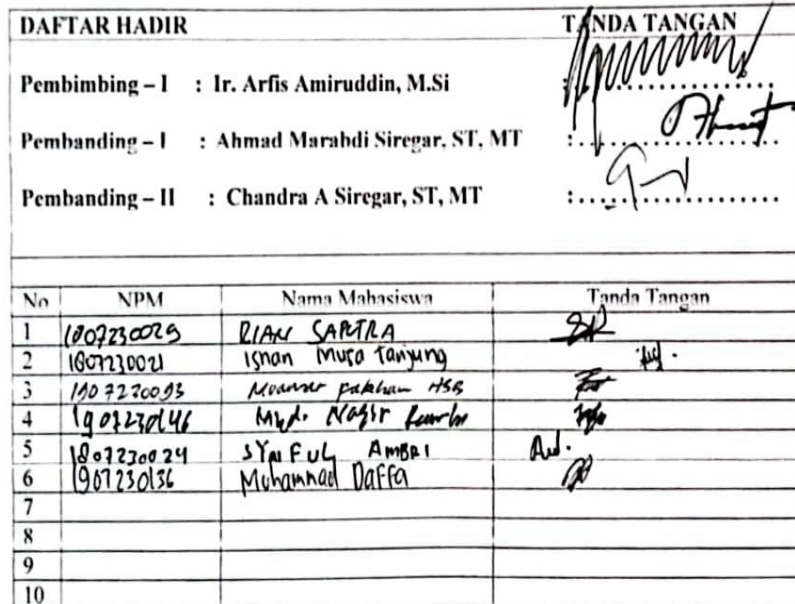 DAFTAR HADIR TANDA TANGAN
Pembimbing – I : Ir. Arfis Amiruddin, M.Si :....................
Pembanding – I : Ahmad Marabdi Siregar, ST, MT :....................
Pembanding – II : Chandra A Siregar, ST, MT :....................
No NPM Nama Mahasiswa Tanda Tangan
1 1807230029 RIAN SAPUTRA
2 1807230021 Isnan Tanjung
3 HSB
4 1907230146 Muhd. Nasir
5 1807230024 SYAIFUL AMBRI
6 1907230136 Muhammad Daffa
7
8
9
10